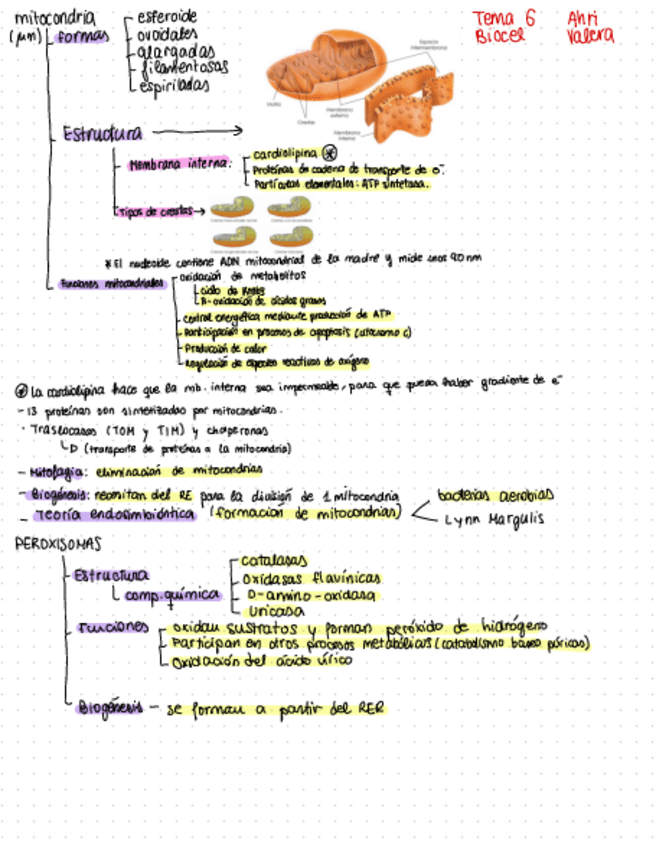 mitocondria
(μm)
formas
esferoide
ovoidales
alargadas
filamentosas
espiriladas
Tema 6 Ahri
Biocel Valera
Espacio
intermembrana
Matriz
Crestas
Membrana
externa
Membrana
interna
Estructura
Membrana interna:
cardiolipina *
Proteínas de cadena de transporte de e-.
Partículas elementales: ATP sintetasa.
Tipos de crestas →
* El nucleoide contiene ADN mitocondrial de la madre y mide unos 90 nm
Funciones mitocondriales
oxidación de metabolitos
ciclo de Krebs
β-oxidación de ácidos grasos
control energética mediante producción de ATP
Participación en procesos de apoptosis (citocromo c)
Producción de calor
Regulación de especies reactivas de oxígeno
* La cardiolipina hace que la mb. interna sea impermeable, para que pueda haber gradiente de e-
- 13 proteínas son sintetizadas por mitocondrias.
· Traslocasas (TOM y TIM) y chaperonas
(transporte de proteínas a la mitocondria)
- Mitofagia: eliminación de mitocondrias
- Biogénesis: necesitan del RE para la división de 1 mitocondria
- Teoría endosimbióntica (formación de mitocondrias)
bacterias aerobias
Lynn Margulis
PEROXISOMAS
Estructura
comp. química
catalasas
oxidasas flavínicas
D-amino-oxidasa
Uricasa
Funciones
oxidan sustratos y forman peróxido de hidrógeno
Participan en otros procesos metabólicos (catabolismo bases púricas)
Oxidación del ácido úrico
Biogénesis - se forman a partir del RER